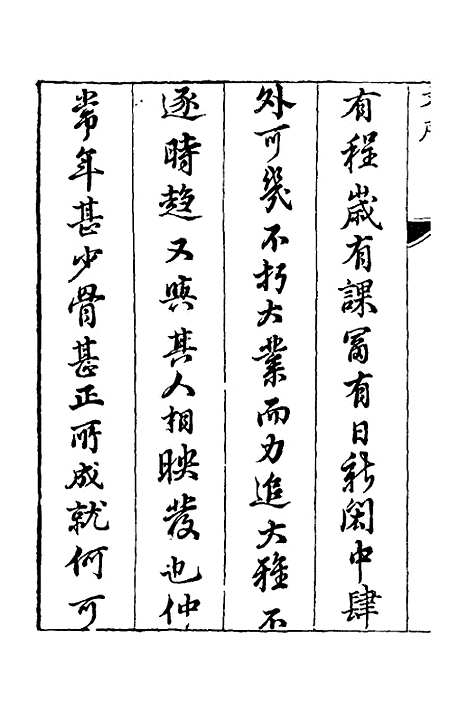 有程歲有課富有日新閎中肆
外可幾不朽大業而力追大雅不
逐時趍又與其人相映發也仲
常年甚少骨甚正所成就何可